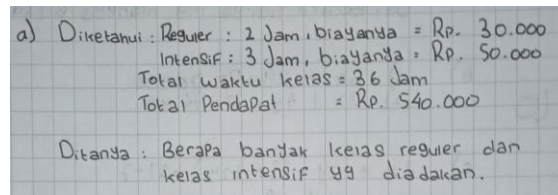 a) Diketahui : Reguler : 2 Jam, biayanya = Rp. 30.000
Intensif : 3 Jam, biayanya = Rp. 50.000
Total waktu kelas = 36 Jam
Total Pendapat = Rp. 540.000
Ditanya : Berapa banyak kelas reguler dan
kelas intensif yg diadakan.